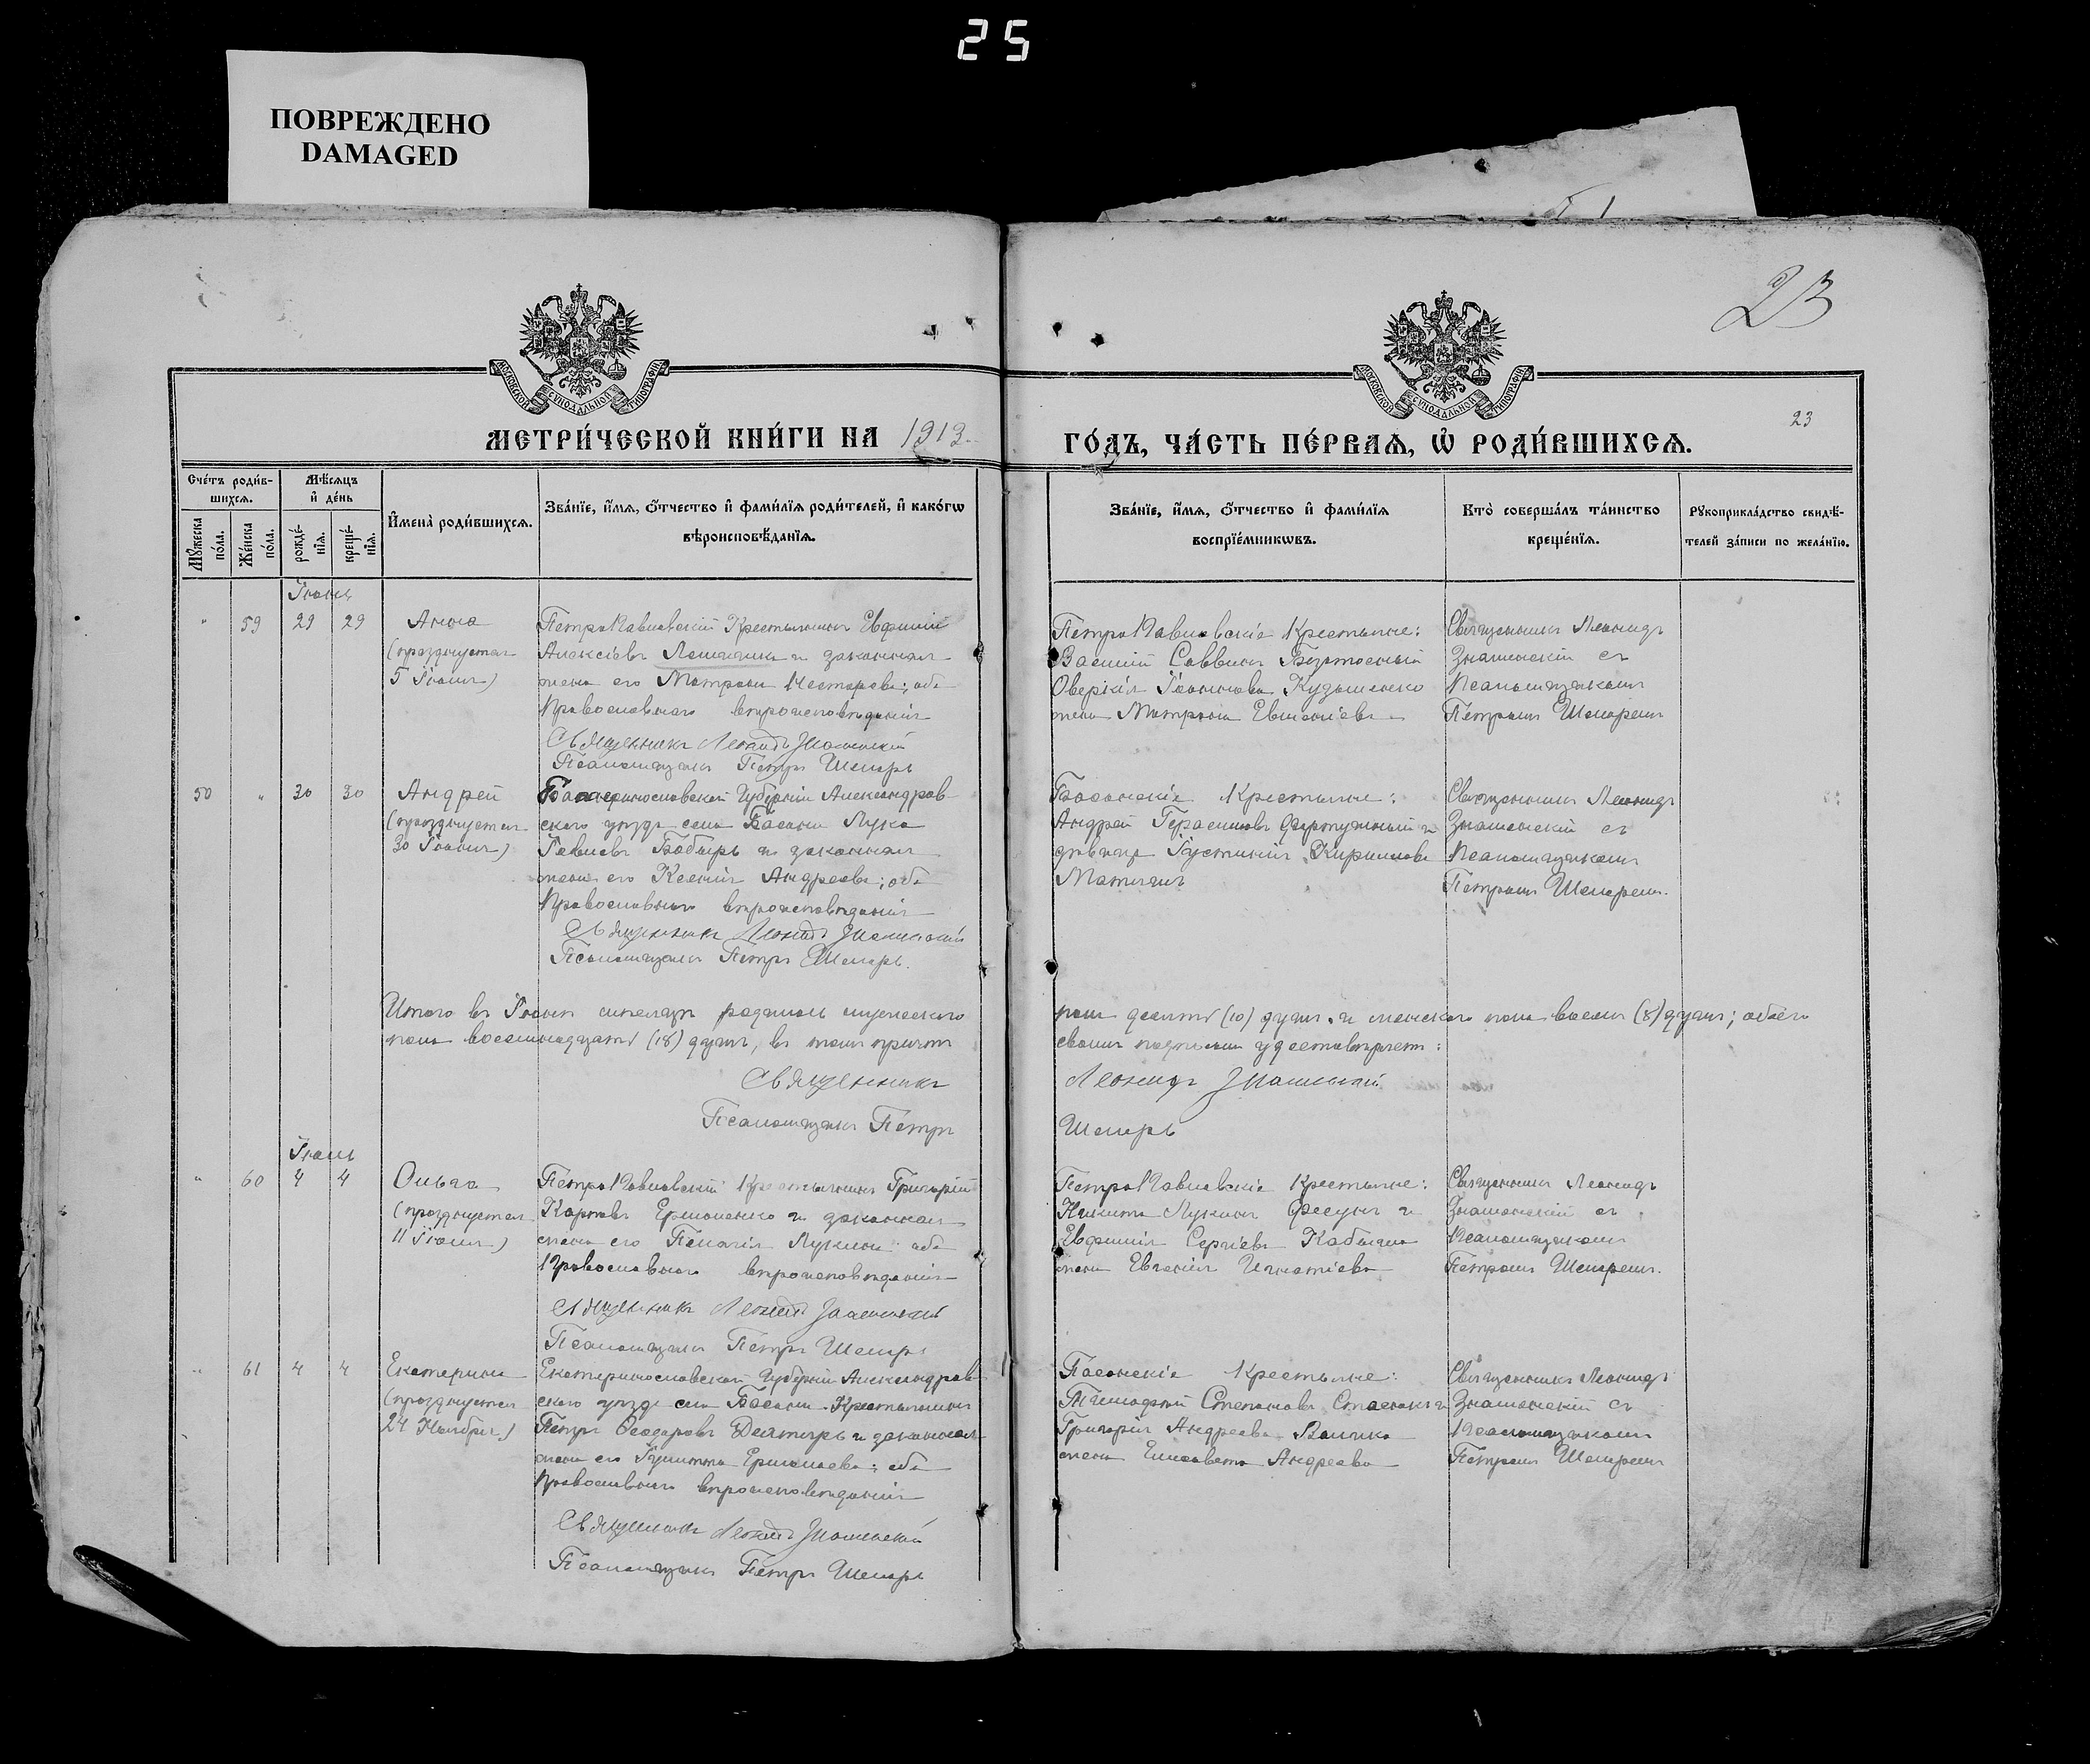 25
ПОВРЕЖДЕНО
DAMAGED
23
МОСКОВСКОЙ СѴНОДАЛЬНОЙ ТИПОГРАФІИ
МОСКОВСКОЙ СѴНОДАЛЬНОЙ ТИПОГРАФІИ
МЕТРИ́ЧЕСКОЙ КНИ́ГИ НА 1913
ГО́ДЪ, ЧА́СТЬ ПЕ́РВАѦ, Ѡ҆ РОДИ́ВШИХСѦ.
23
Сче́тъ роди́в-
шихсѧ.
Мѣ́сѧцъ
и҆ де́нь
Мꙋ́жеска
по́ла.
Же́нска
по́ла.
рожде́-
нїѧ.
креще́-
нїѧ.
И҆мена̀ роди́вшихсѧ.
Зва́нїе, и҆́мѧ, ѻ҆́тчество и҆ фами́лїѧ роди́телей, и҆ како́гѡ
вѣроисповѣ́данїѧ.
Зва́нїе, и҆́мѧ, ѻ҆́тчество и҆ фами́лїѧ
воспрїе́мникѡвъ.
Кто̀ соверша́лъ та́инство
креще́нїѧ.
Рꙋкоприкла́дство свидѣ́-
телей за́писи по жела́нїю.
Іюнь
" 59 29 29 Анна
(празднуется
5 Іюля)
Петропавловскій Крестьянинъ Евфимій
Алексіевъ и законная
жена его Матрона Несторова; оба
Православнаго вѣроисповѣданія
Священникъ Леонидъ Знаменскій
Псаломщикъ Петръ Шепаръ
Петропавловскіе Крестьяне:
Василій Саввинъ
Аверкія Іоаннова Кузьменко
жена Матрона
Священникъ Леонидъ
Знаменскій съ
Псаломщикомъ
Петромъ Шепаремъ
50 " 30 30 Андрей
(празднуется
30 Іюня)
Екатеринославской Губерніи Александров
скаго уѣзда села Басани Лука
Бобырь и законная
жена его Ксенія Андреева; оба
Православнаго вѣроисповѣданія
Священникъ Леонидъ Знаменскій
Псаломщикъ Петръ Шепаръ.
Басанскіе Крестьяне:
Андрей Герасимовъ и
дѣвица Іустинія Кириллова
Священникъ Леонидъ
Знаменскій съ
Псаломщикомъ
Петромъ Шепаремъ.
Итого въ Іюнѣ мѣсяцѣ родилось мужескаго
пола восемнадцать (18) душъ, въ томъ причтъ
пола десять (10) душъ и женскаго пола восемь (8) душъ; обоего
своимъ подписомъ удостовѣряетъ:
Священникъ
Леонидъ Знаменскій
Псаломщикъ Петръ
Шепаръ
Іюль
" 60 4 4 Ольга
(празднуется
11 Іюля)
Петропавловскій Крестьянинъ Григорій
Карповъ Ермоленко и законная
жена его Пелагія Лукина оба
Православнаго вѣроисповѣданія
Священникъ Леонидъ Знаменскій
Псаломщикъ Петръ Шепаръ
Петропавловскіе Крестьяне:
Никита Лукинъ Фесунъ и
Евфимія Сергіева
жена Евгенія Игнатіева
Священникъ Леонидъ
Знаменскій съ
Псаломщикомъ
Петромъ Шепаремъ.
" 61 4 4 Екатерина
(празднуется
24 Ноября)
Екатеринославской Губерніи Александров
скаго уѣзда села Басани Крестьянинъ
Петръ Ѳеодоровъ Дехтярь и законная
жена его Ермолаева; оба
Православнаго вѣроисповѣданія
Священникъ Леонидъ Знаменскій
Псаломщикъ Петръ Шепаръ
Басанскіе Крестьяне:
Тимофей Степановъ и
Григорія Андреева
жена Елисавета Андреева
Священникъ Леонидъ
Знаменскій съ
Псаломщикомъ
Петромъ Шепаремъ